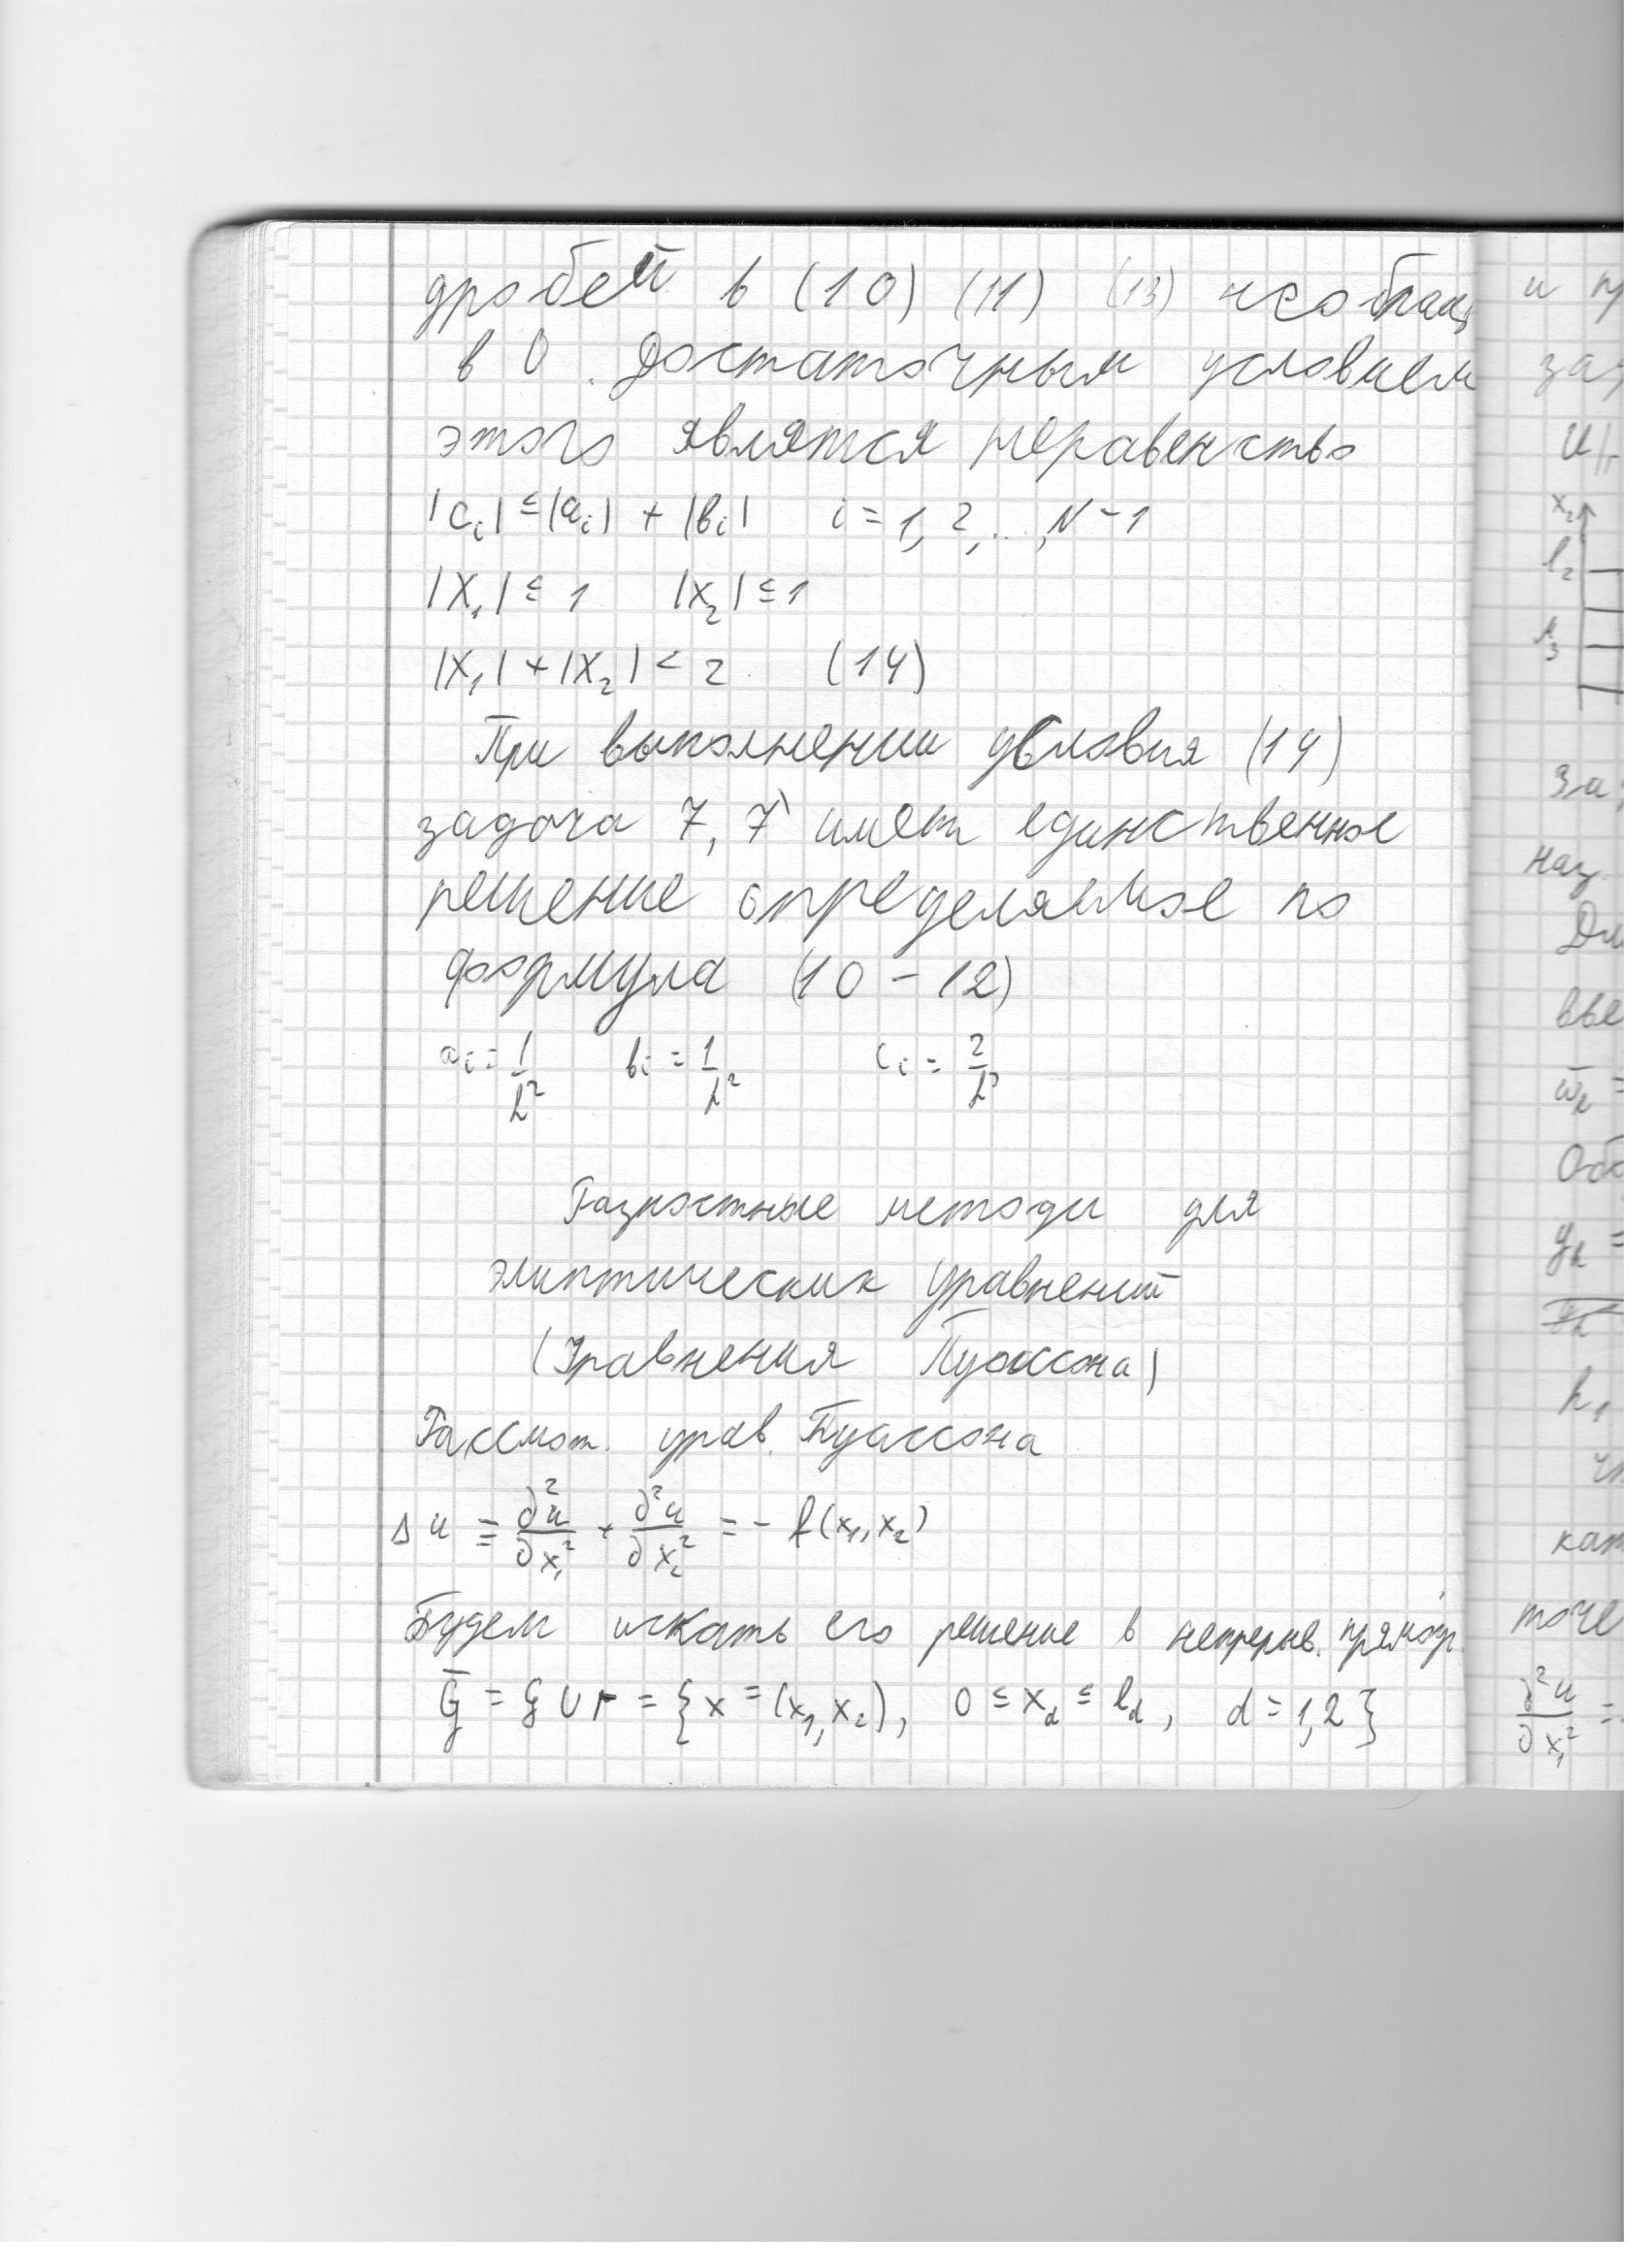 дробей в (10) (11) (13) не обращ
в 0. Достаточным условием
этого являтся неравенство
|c_i| ≤ |a_i| + |b_i|   i = 1, 2, ..., N - 1
|X_1| ≤ 1   |X_2| ≤ 1
|X_1| + |X_2| < 2   (14)
При выполнении условия (14)
задача 7, 7` имеет единственное
решение определяемое по
формула (10 - 12)
a_i = 1/h^2   b_i = 1/h^2   c_i = 2/h^2
Разностные методы для
элиптических уравнений
(Уравнения Пуассона)
Рассмот. урав. Пуассона
Δu ≡ ∂^2u/∂x_1^2 + ∂^2u/∂x_2^2 = - f(x_1, x_2)
Будем искать его решение в непрерыв. прямоуг.
G̅ = G ∪ Г = {x = (x_1, x_2), 0 ≤ x_d ≤ l_d, d = 1,2}
x_2
l_2
за
наз.
точе
∂^2u/∂x_1^2 =